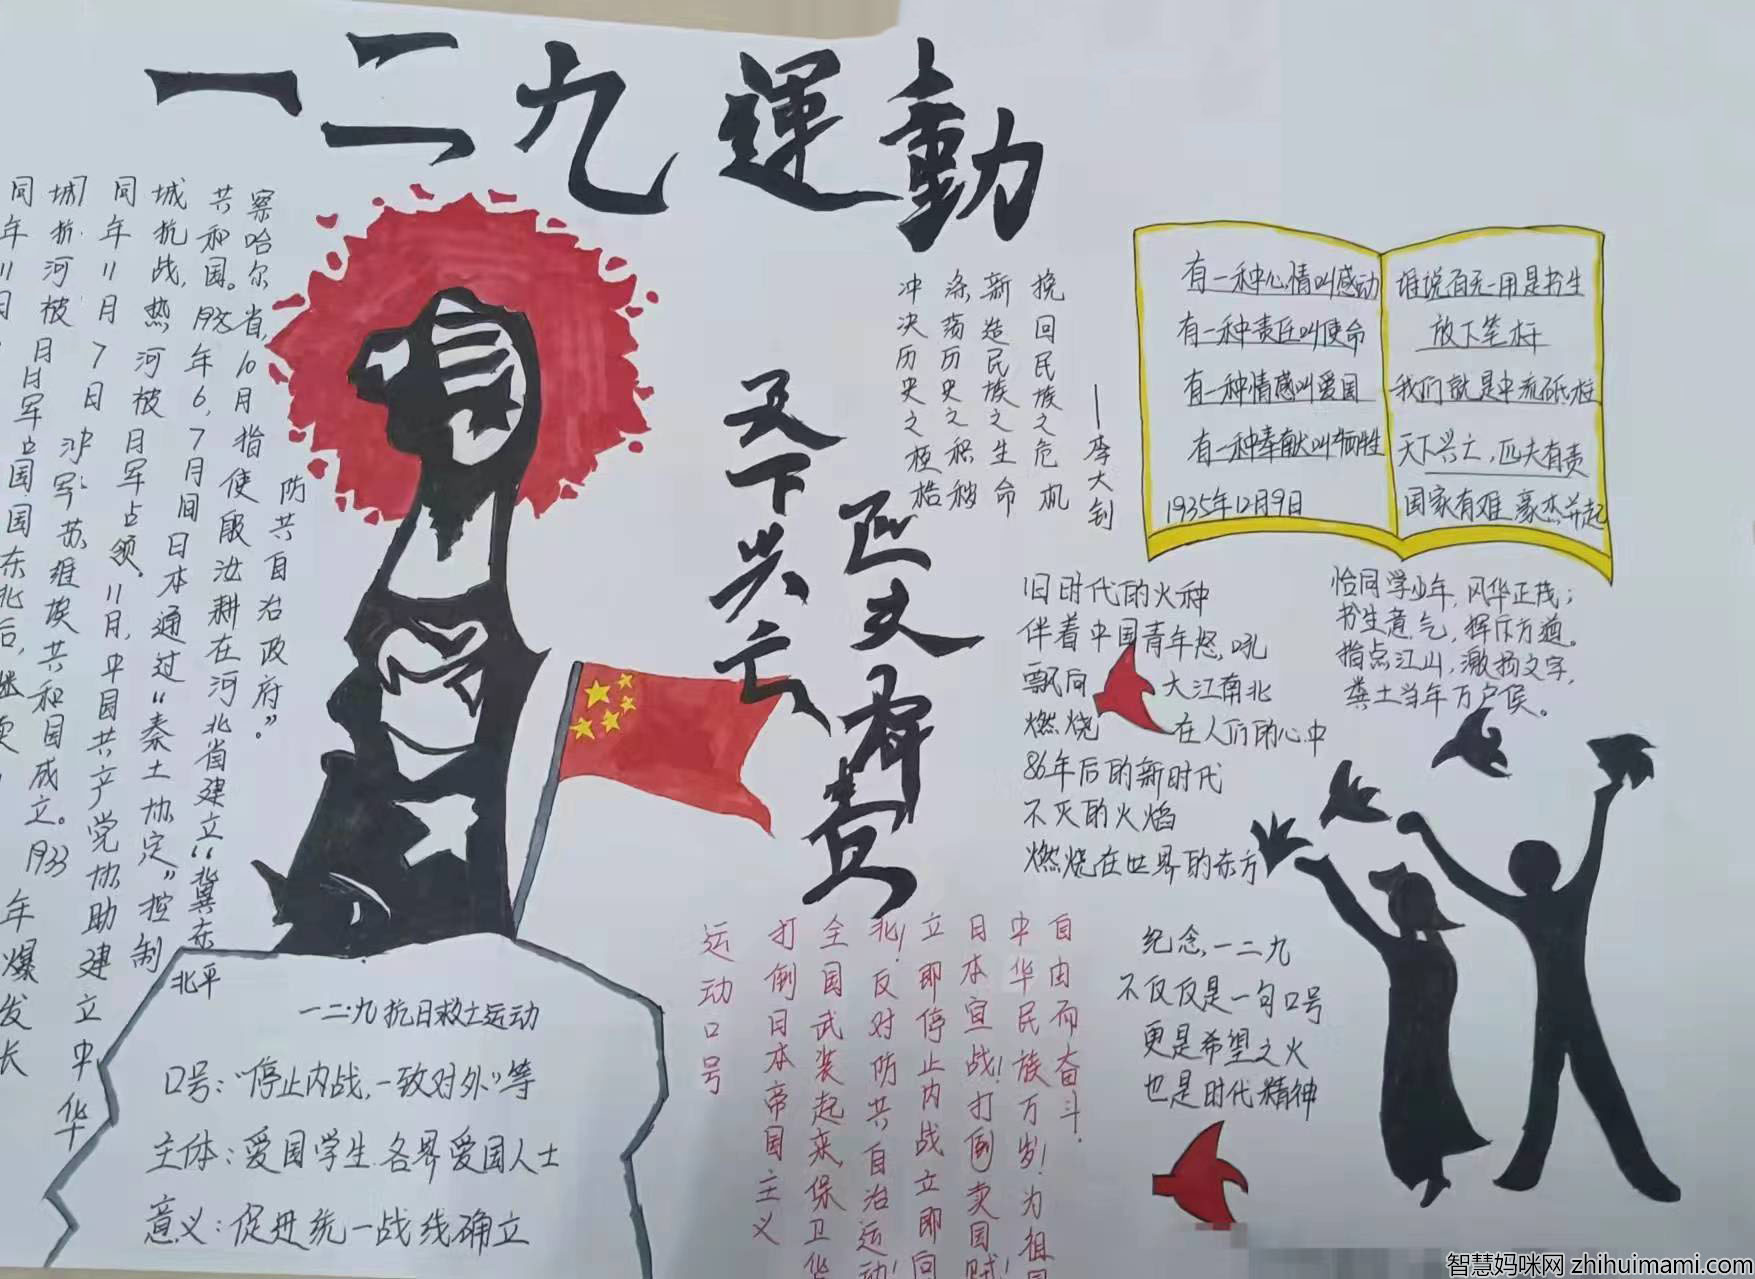 一二九運動
挽回民族之危机
新造民族之生命
涤荡历史之积秽
冲决历史之桎梏
—李大钊
天下兴亡
匹夫有责
有一种心情叫感动
有一种责任叫使命
有一种情感叫爱国
有一种奉献叫牺牲
1935年12月9日
谁说百无一用是书生
放下笔杆
我们就是中流砥柱
天下兴亡，匹夫有责
国家有难 豪杰并起
旧时代的火种
伴着中国青年怒吼
飘向大江南北
燃烧在人们的心中
86年后的新时代
不灭的火焰
燃烧在世界的东方
恰同学少年，风华正茂；
书生意气，挥斥方遒。
指点江山，激扬文字，
粪土当年万户侯。
纪念一二九
不仅仅是一句口号
更是希望之火
也是时代精神
防共自治政府”。
察哈尔省，10月指使殷汝耕在河北省建立“冀东
共和国。1935年6，7月间日本通过“秦土协定”控制
城抗战，热河被日军占领．11月，中国共产党协助建立中华
同年11月7日
城抗
河被
日军占
苏维埃共和国成立。1933
同年11
国东北后，继
年爆发长
北平
一二·九抗日救亡运动
口号：“停止内战，一致对外”等
主体：爱国学生．各界爱国人士
意义：促进统一战线确立
自由而奋斗．
中华民族万岁！为祖国
日本宣战！打倒卖国贼！
立即停止内战立即向
北！反对防共自治运动！
全国武装起来，保卫华
打倒日本帝国主义
运动口号
智慧妈咪网 zhihuimami.com